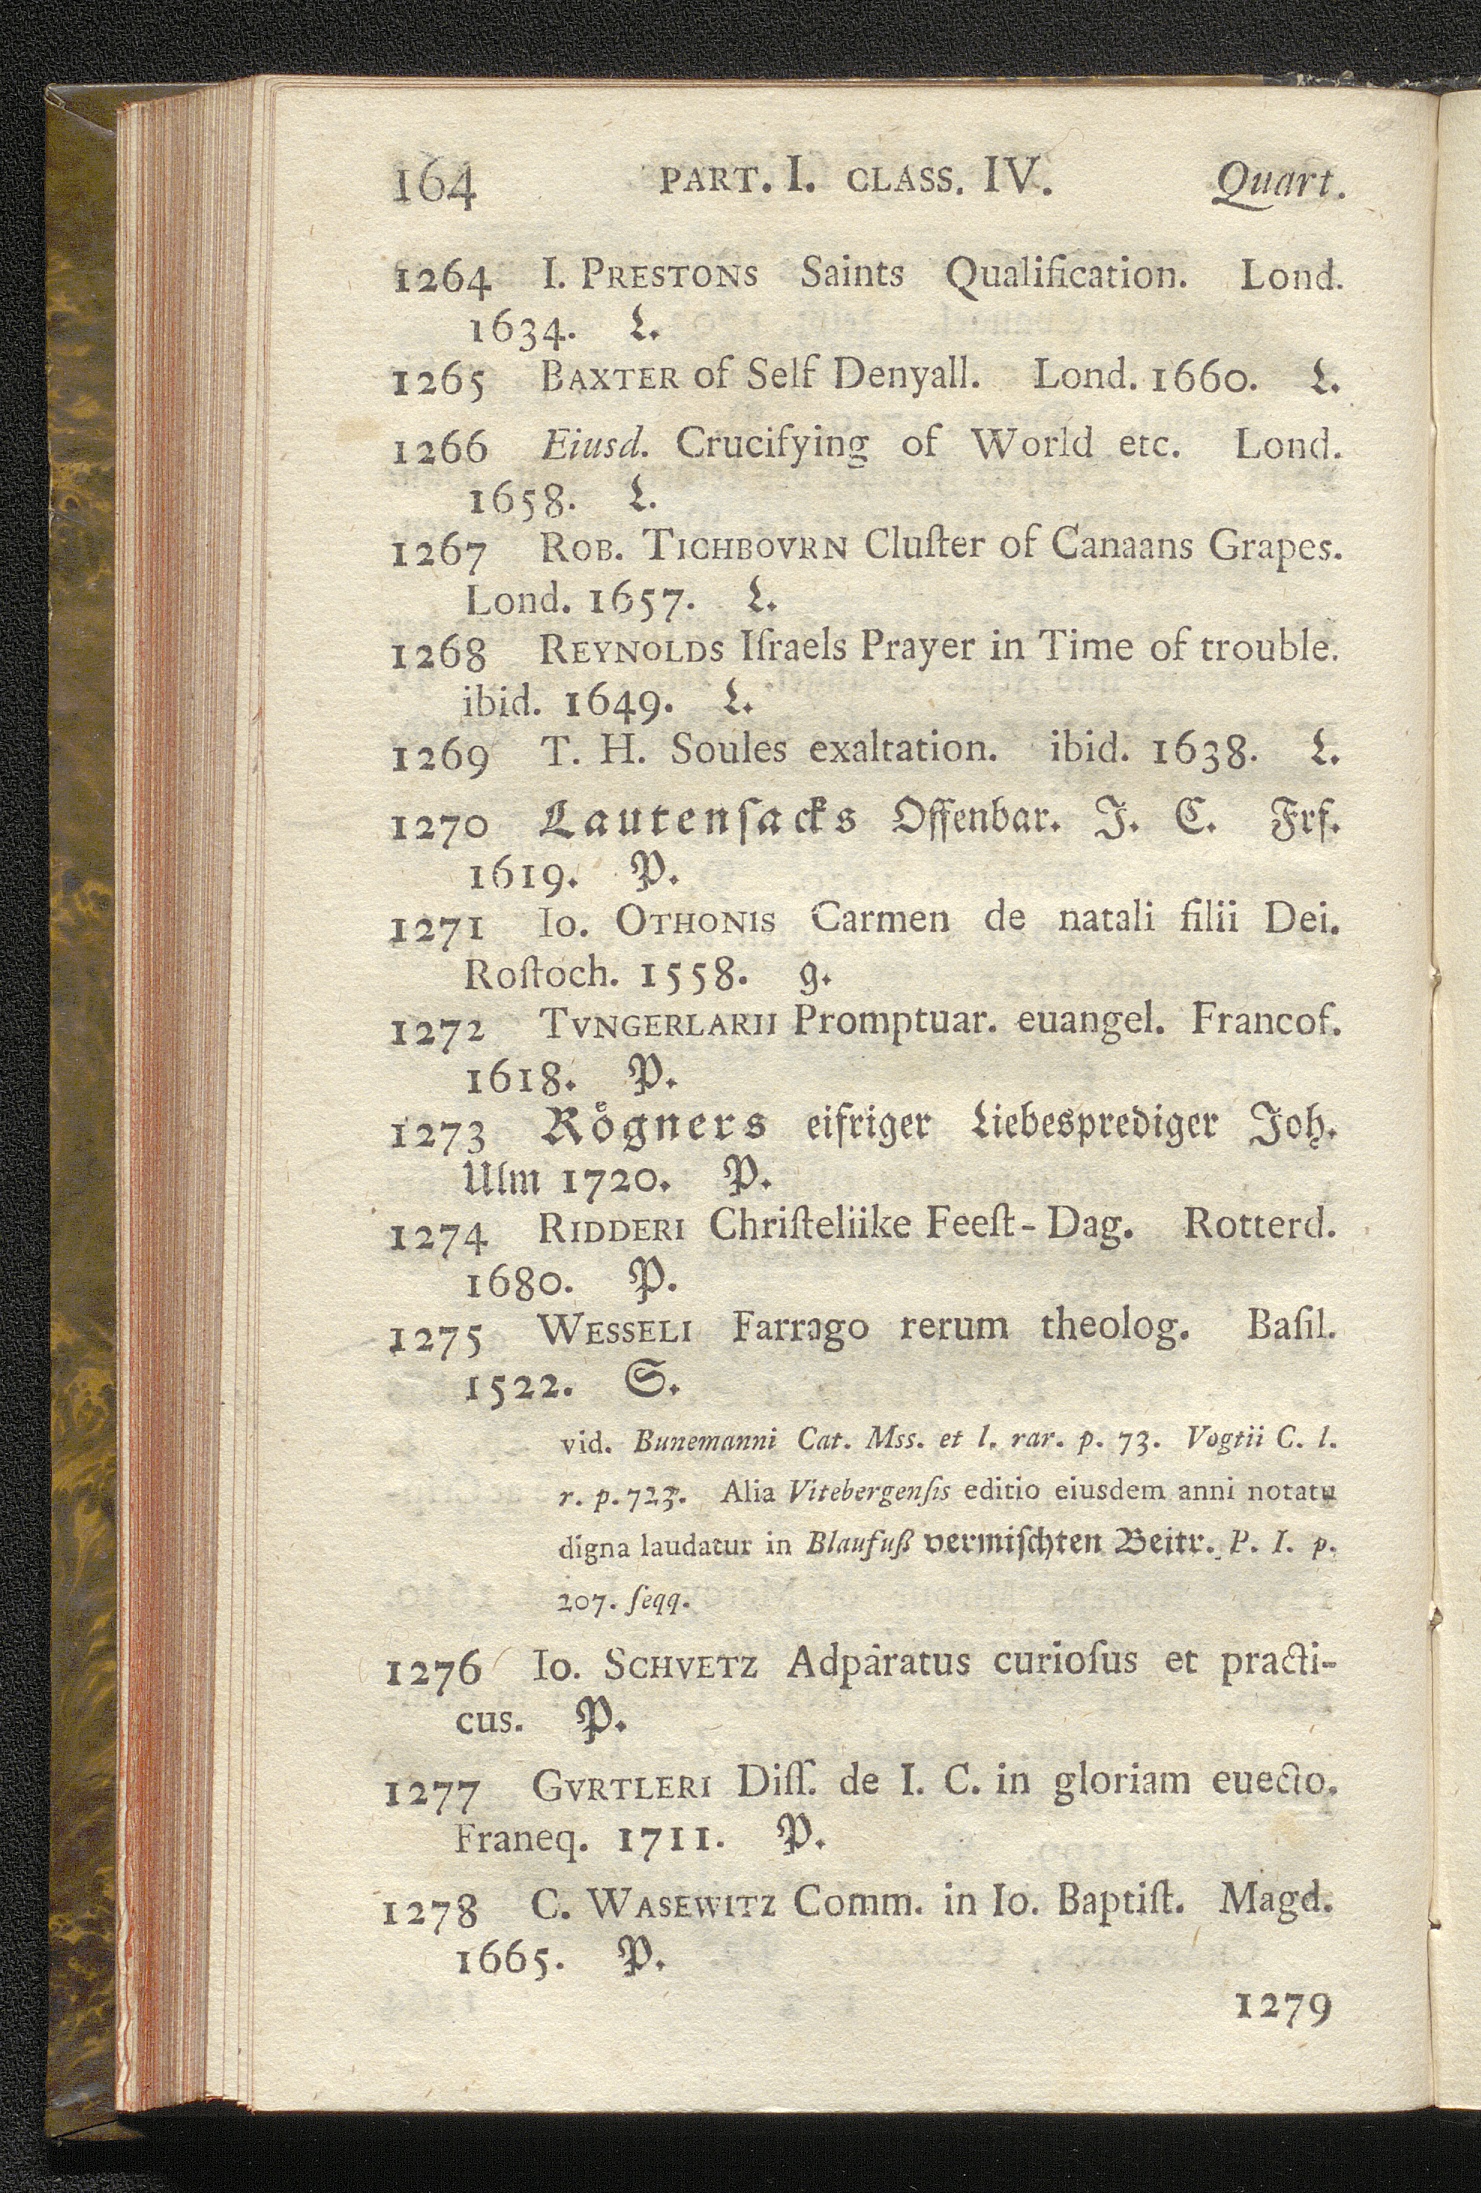 164 PART. I. CLASS. IV. Quart.
1264 I. PRESTONS Saints Qualification. Lond.
1634. L.
1265 BAXTER of Self Denyall. Lond. 1660. L.
1266 Eiusd. Crucifying of World etc. Lond.
1658. L.
1267 ROB. TICHBOVRN Cluſter of Canaans Grapes.
Lond. 1657. L.
1268 REYNOLDS Iſraels Prayer in Time of trouble.
ibid. 1649. L.
1269 T. H. Soules exaltation. ibid. 1638. L.
1270 Lautenſacks Offenbar. J. C. Frf.
1619. P.
1271 IO. OTHONIS Carmen de natali filii Dei.
Roſtoch. 1558. g.
1272 TVNGERLARII Promptuar. euangel. Francof.
1618. P.
1273 Roͤgners eifriger Liebesprediger Joh.
Ulm 1720. P.
1274 RIDDERI Chriſteliike Feeſt-Dag. Rotterd.
1680. P.
1275 WESSELI Farrago rerum theolog. Baſil.
1522. S.
vid. Bunemanni Cat. Mss. et l. rar. p. 73. Vogtii C. l.
r. p. 723. Alia Vitebergenſis editio eiusdem anni notatu
digna laudatur in Blaufuß vermiſchten Beitr. P. I. p.
207. ſeqq.
1276 IO. SCHVETZ Adparatus curioſus et practi-
cus. P.
1277 GVRTLERI Diſſ. de I. C. in gloriam euecto.
Franeq. 1711. P.
1278 C. WASEWITZ Comm. in Io. Baptiſt. Magd.
1665. P.
1279